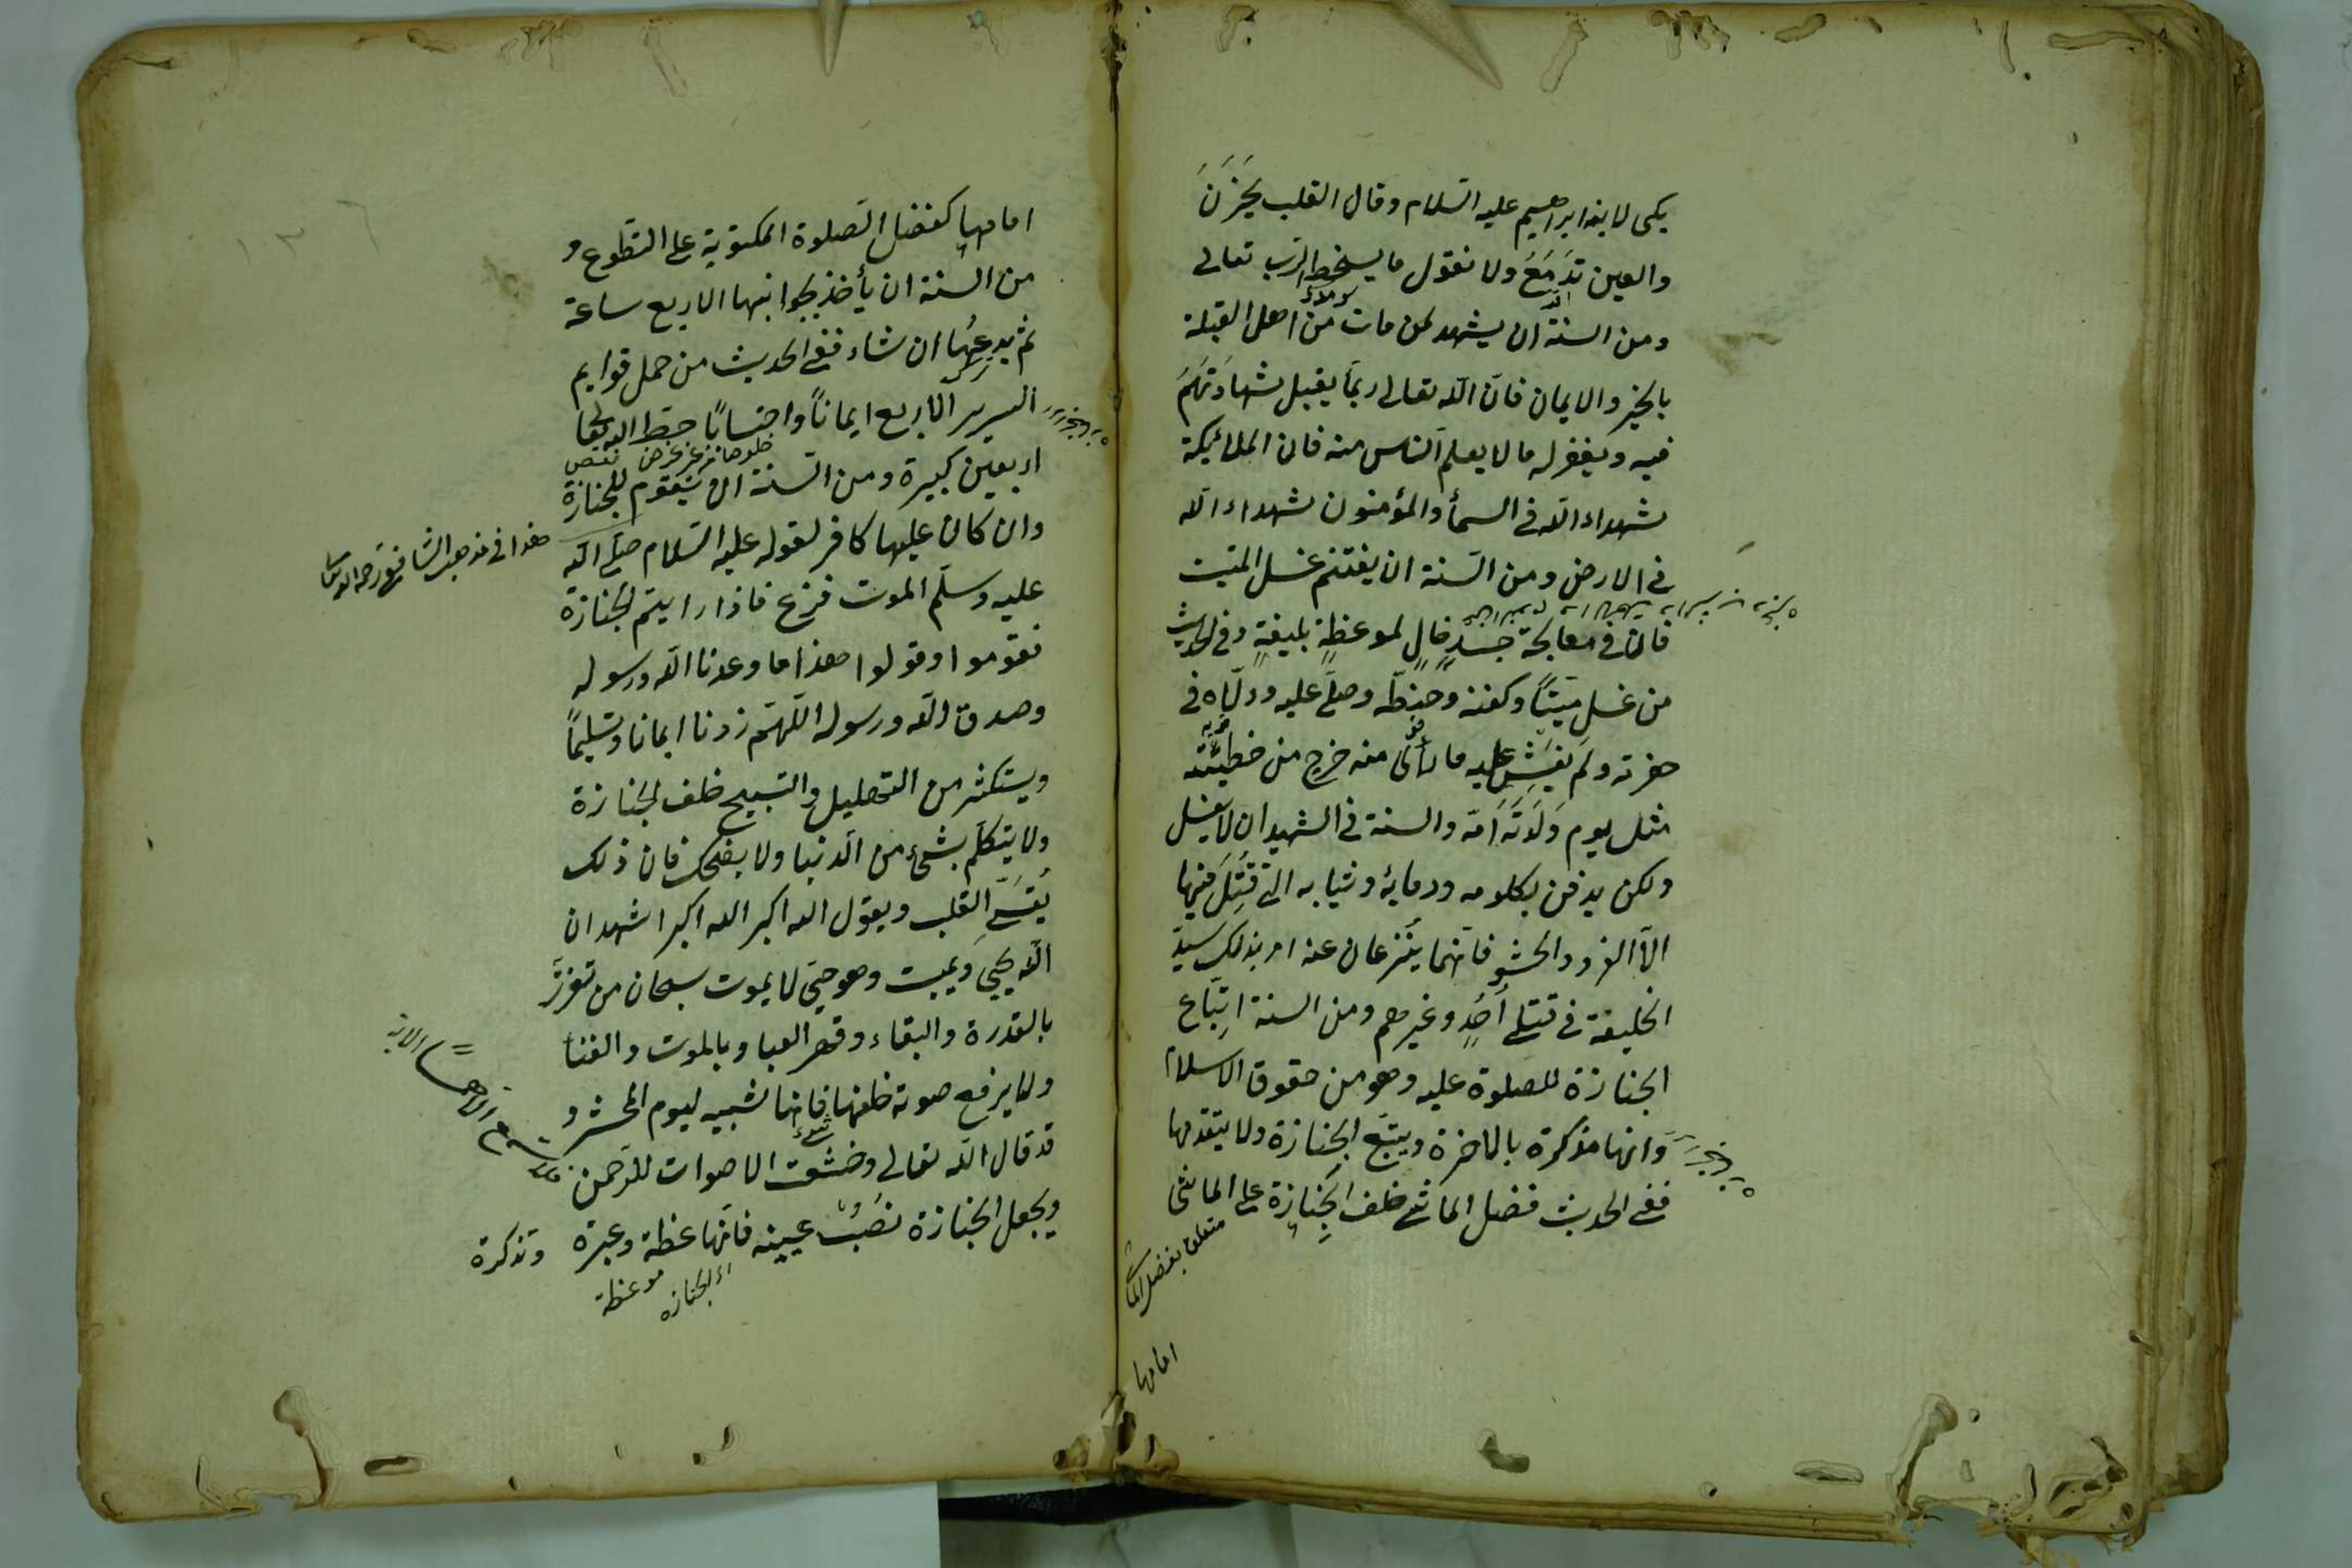 بكى لابنه ابراهيم عليه السّلام وقال القلب يَحْزَنُ
والعين تَدْمَعُ ولا نقول ما يسخط الربّ تعالى
ومن السنة ان يشهد لمن مات من اهل القبلة
بالخير والايمان فانّ اللّه تعالى ربّما يقبل شهادَتَهُمْ
فيه ويغفر له ما لا يعلم النّاس منه فان الملائكة
شهداء اللّه فى السمأ والمؤمنون شهداء اللّه
فى الارض ومن السّنة ان يغتنم غسل الميّت
فان فى معالجة جسدٍ خالٍ لموعظةٍ بليغةٍ وفى الحديث
من غسل ميّتاً وكفنه وحنطّه وصلّى عليه ودلّاه فى
حفرته ولم يفشِ عليه ما رأى منه خرج من خطيئته
مثل يوم وَلَدَتْهُ اُمّه والسنة فى الشهيد ان لا يغسل
ولكن يدفن بكلومه ودمائه وثيابه التى قُتِلَ فيها
الّا الفرو والحشو فانّهما ينزعان عنه امر بذلك سيّد
الخليقة فى قتلى اُحُدٍ وغيرهم ومن السنة اتِّباع
الجنازة للصلوة عليه وهو من حقوق الاسلام
وانها مذكرة بالاخرة ويتبع الجنازة ولا يتقدمها
ففى الحديث فضل الماشى خلف الجِنازة على الماشى
متعلق بفضل الماشى
امامها
١٣٦
امامها كفضل الصّلوة المكتوبة على التطوع و
من السّنة ان يأخذ بجوانبها الاربع ساعة
ثم يدعها ان شاء ففى الحديث من حمل قوايم
السرير الاربع ايماناً واحتساباً حطّ اللّه بها
اربعين كبيرة ومن السّنة ان يقوم للجنازة
وان كان عليها كافر لقوله عليه السّلام صلّى اللّه
هذا فى مذهب الشافعى رحمه الله تعالى
عليه وسلّم الموت فزع فاذا رايتم الجنازة
فقوموا وقولوا هذا ما وعدنا اللّه ورسوله
وصدق اللّه ورسوله اللّهمّ زدنا ايمانا وتسليماً
ويستكثر من التهليل والتسبيح خلف الجنازة
ولا يتكلّم بشئ من الدّنيا ولا يضحك فان ذلك
يُقسّى القلب ويقول اللّه اكبر اللّه اكبر اشهد ان
اللّه يحيى ويميت وهو حىّ لا يموت سبحان من تعزّز
بالقدرة والبقاء وقهر العباد بالموت والفنأ
ولا يرفع صوته خلفها فانها لشبيه ليوم المحشر و
قد قال اللّه تعالى وخشعت الاصوات للرّحمن
ويجعل الجنازة نصب عينيه فانّها عظة وعبرة وتذكرة
اى الجنازه موعظة